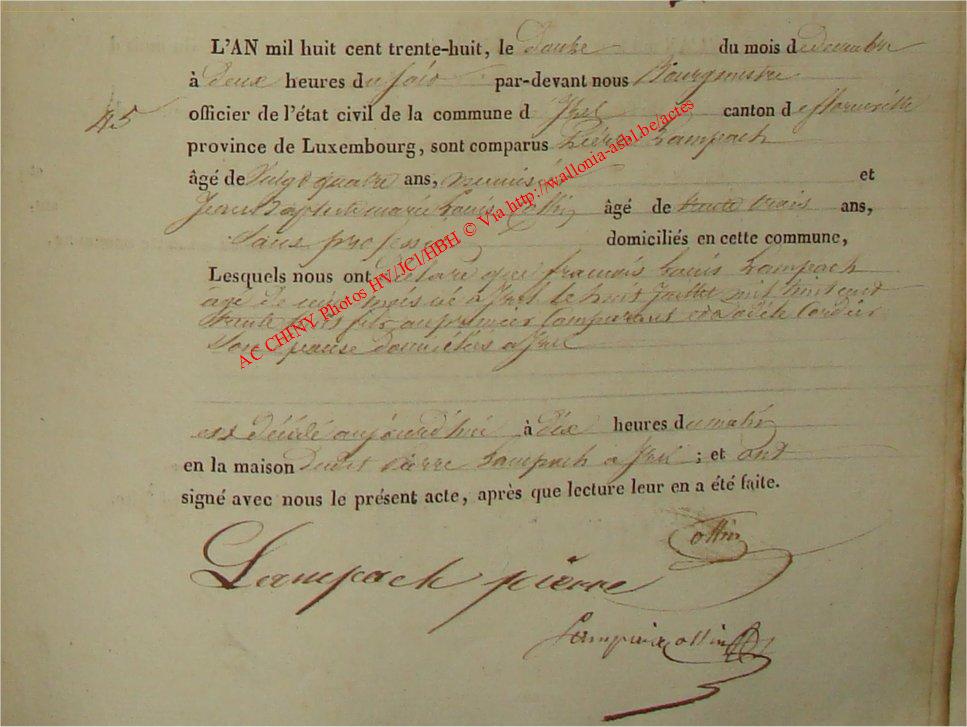 L'AN mil huit cent trente-huit, le douze du mois de decembre
à deux heures du soir par-devant nous Bourgmestre
45
officier de l'état civil de la commune d Izel canton d
province de Luxembourg, sont comparus Pierre Lampach
âgé de vingt quatre ans, et
Jean Baptiste marie Louis Collin âgé de trente trois ans,
Sans profession domiciliés en cette commune,
Lesquels nous ont déclaré que francois Louis Lampach
agé de cinq mois né a Izel le huit Juillet mil huit cent
trente huit fils au premier Comparant et a Cordier
Son epouse domiciliés a Izel
est décédé aujourd'hui à dix heures du matin
en la maison dudit Pierre Lampach a Izel ; et ont
signé avec nous le présent acte, après que lecture leur en a été faite.
Collin
Lampach pierre
AC CHINY Photos HV/JCl/HBH © Via http://wallonia-asbl.be/actes